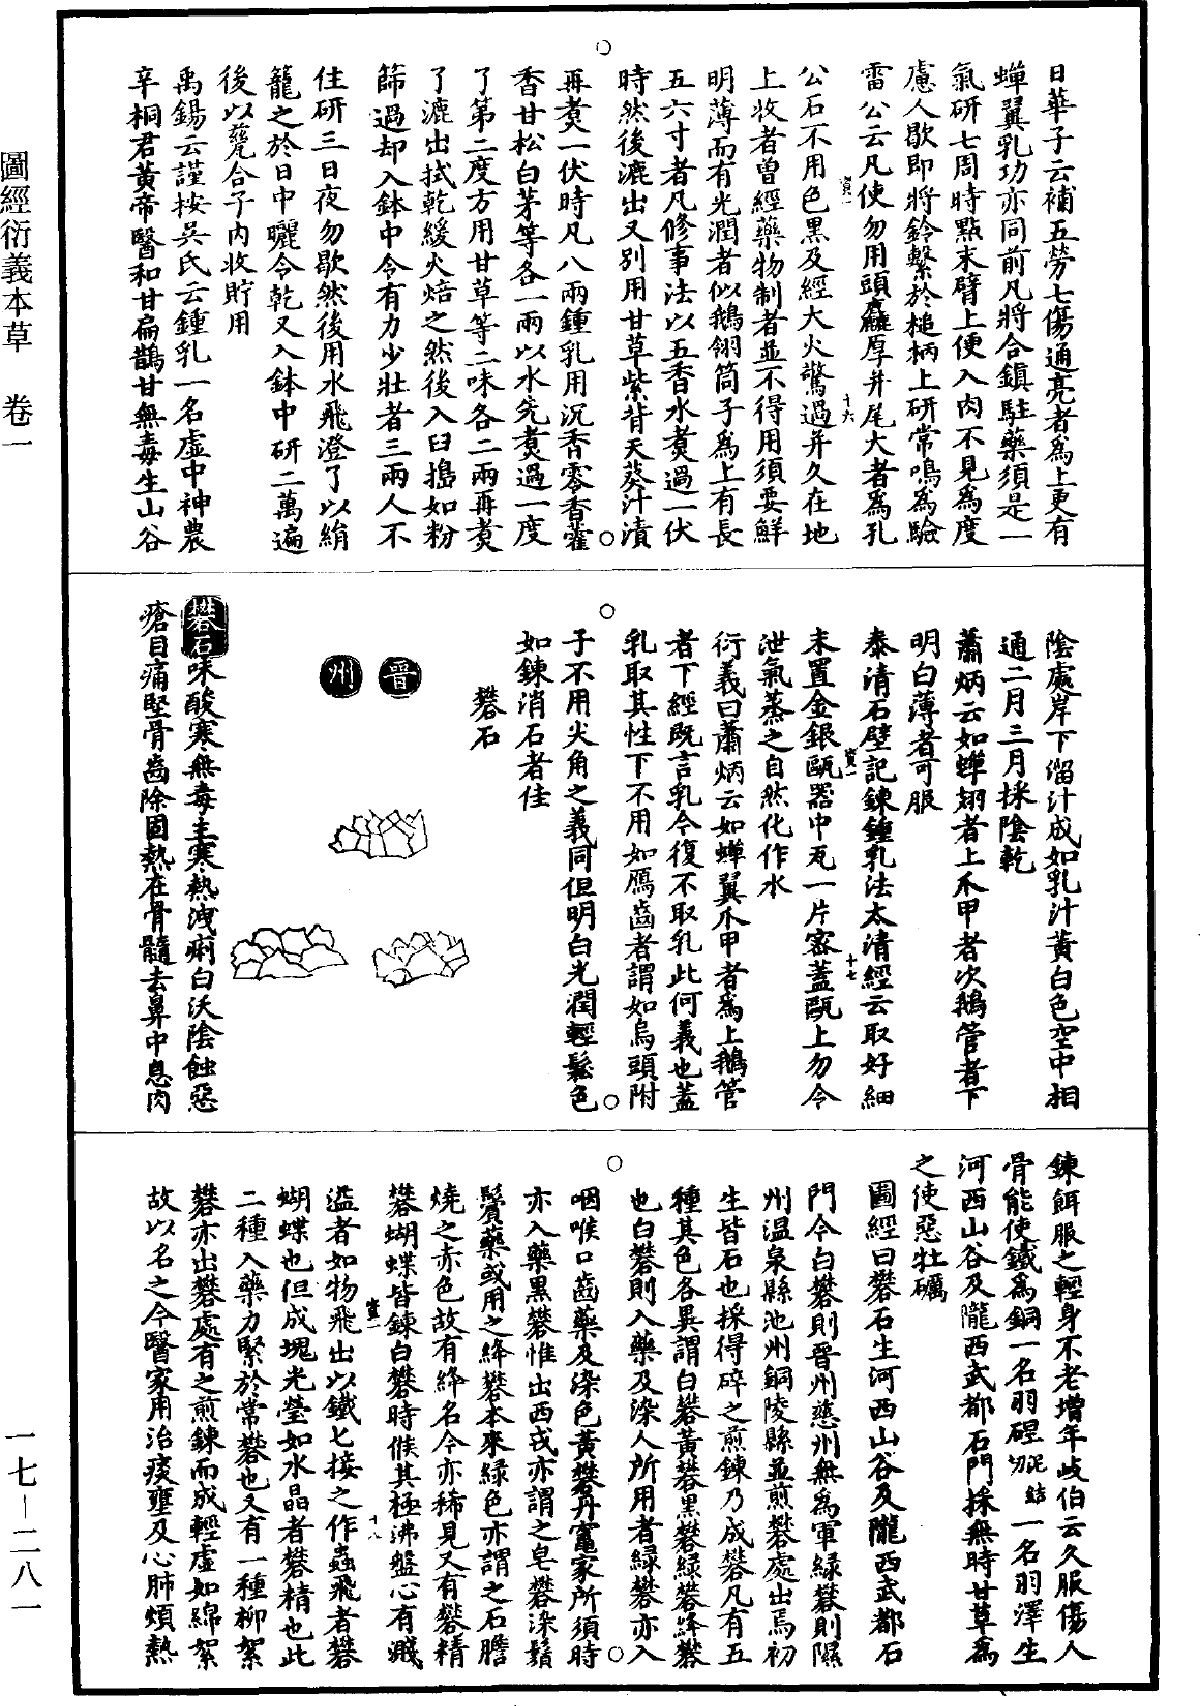 日華子云補五勞七傷通亮者爲上更有
蟬翼乳功亦同前凡將合鎮駐藥須是一
氣研七周時點末臂上便入肉不見爲度
慮人歇即將鈴繫於槌柄上研常鳴爲驗
雷公云凡使勿用頭麤厚并尾大者爲孔
公石不用色黑及經大火驚過并久在地
上收者曾經藥物制者並不得用須要鮮
明薄而有光潤者似鵝翎筒子爲上有長
五六寸者凡修事法以五香水煮過一伏
時然後漉出又別用甘草紫背天葵汁漬
再煮一伏時凡八兩鍾乳用沉香零香藿
香甘松白茅等各一兩以水先煮過一度
了第二度方用甘草等二味各二兩再煮
了漉出拭乾緩火焙之然後入臼搗如粉
篩過却入鉢中令有力少壯者三兩人不
住研三日夜勿歇然後用水飛澄了以絹
籠之於日中曬令乾又入鉢中研二萬遍
後以甆合子內收貯用
禹錫云謹按吳氏云鍾乳一名虛中神農
辛桐君黃帝醫和甘扁鵲甘無毒生山谷
陰處岸下溜汁成如乳汁黃白色空中相
通二月三月採陰乾
蕭炳云如蟬翅者上爪甲者次鵝管者下
明白薄者可服
泰清石壁記鍊鍾乳法太清經云取好細
末置金銀甌器中瓦一片密蓋甌上勿令
泄氣蒸之自然化作水
衍義曰蕭炳云如蟬翼爪甲者爲上鵝管
者下經既言乳今復不取乳此何義也蓋
乳取其性下不用如鴈齒者謂如烏頭附
子不用尖角之義同但明白光潤輕鬆色
如鍊消石者佳
礬石
晉
州
礬石味酸寒無毒主寒熱洩痢白沃陰蝕惡
瘡目痛堅骨齒除固熱在骨髓去鼻中息肉
鍊餌服之輕身不老增年歧伯云久服傷人
骨能使鐵爲銅一名羽𥑮泥結切一名羽澤生
河西山谷及隴西武都石門採無時甘草爲
之使惡牡礪
圖經曰礬石生河西山谷及隴西武都石
門今白礬則晉州慈州無爲軍綠礬則隰
州溫泉縣池州銅陵縣並煎礬處出焉初
生皆石也採得碎之煎鍊乃成礬凡有五
種其色各異謂白礬黃礬黑礬綠礬絳礬
也白礬則入藥及染人所用者綠礬亦入
咽喉口齒藥及染色黃礬丹竈家所須時
亦入藥黑礬惟出西戎亦謂之皁礬染鬚
鬢藥或用之絳礬本來綠色亦謂之石膽
燒之赤色故有絳名今亦稀見又有礬精
礬蝴蝶皆鍊白礬時候其極沸盤心有濺
溢者如物飛出以鐵匕接之作蟲飛者礬
蝴蝶也但成塊光瑩如水晶者礬精也此
二種入藥力緊於常礬也又有一種柳絮
礬亦出礬處有之煎鍊而成輕虛如綿絮
故以名之今醫家用治痰壅及心肺煩熱
十六
寶一
十七
寶一
十八
圖經衍義本草　卷一
一七—二八一